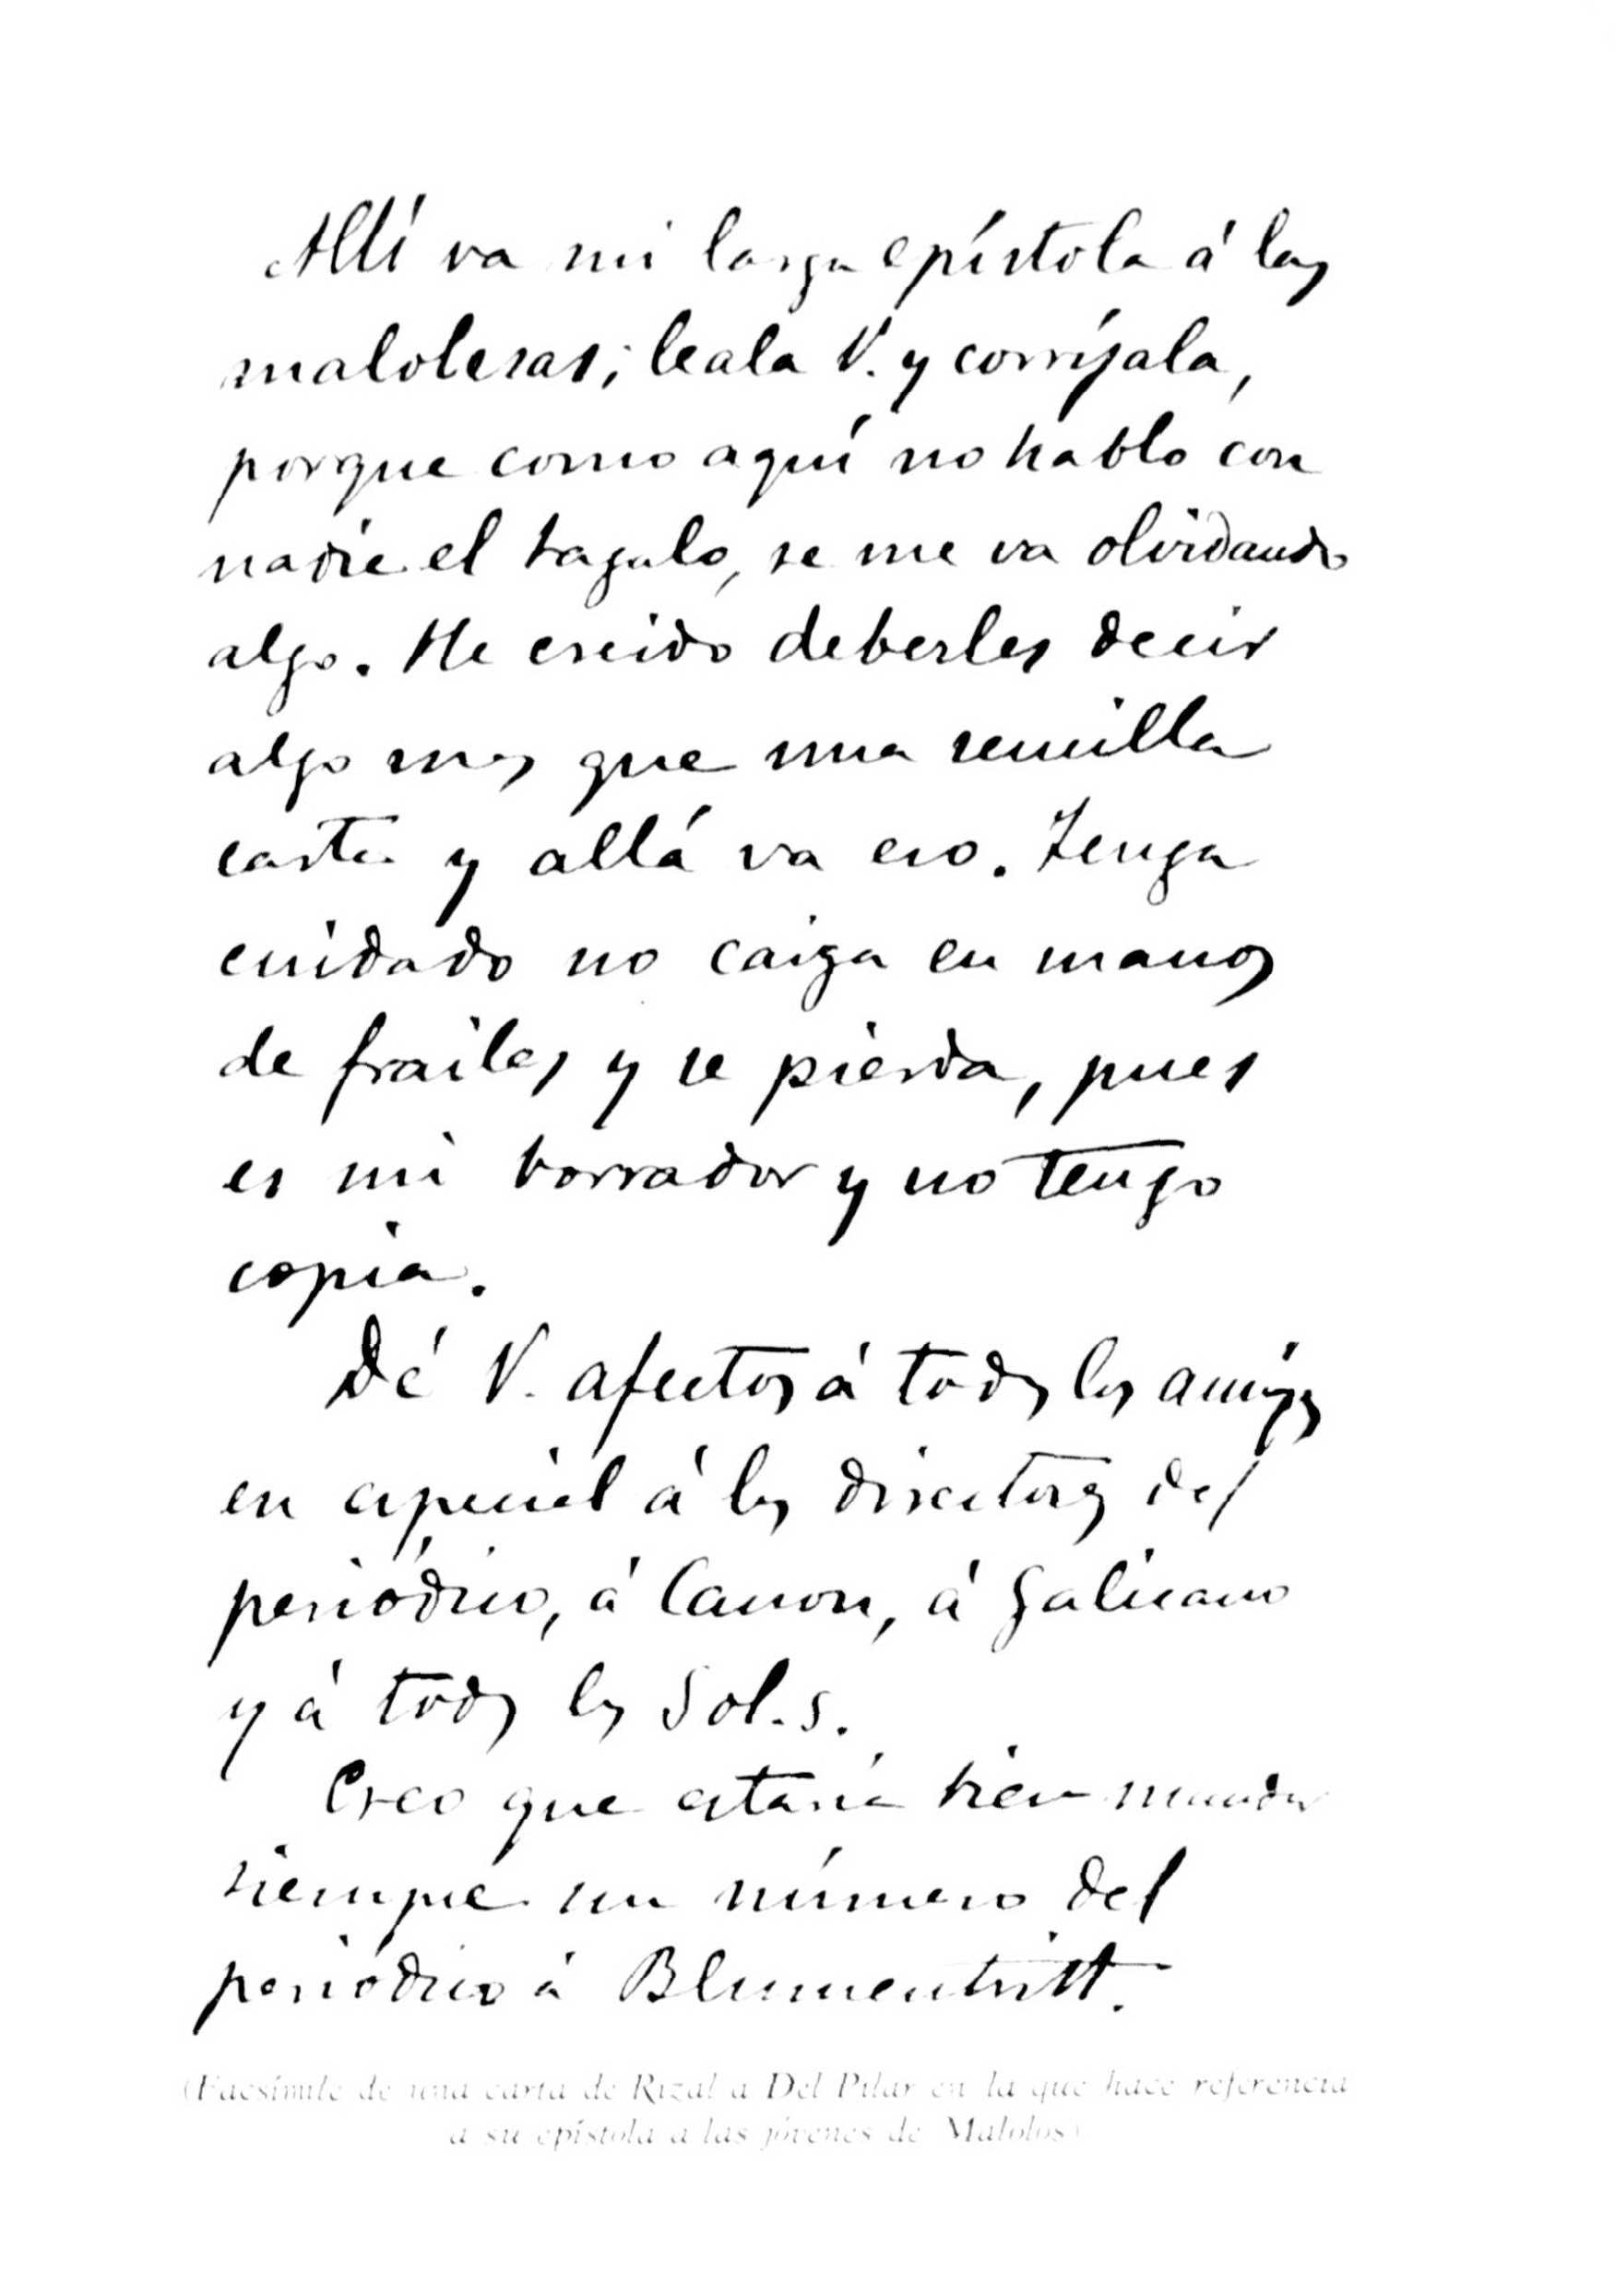 Allí va mi larga epístola á las
malolesas; leala V. y corríjala,
porque como aquí no hablo con
nadie el tagalo, se me va olvidando
algo. He creido deberles decir
algo mas que una sencilla
carta y allá va eso. Tenga
cuidado no caiga en manos
de frailes y se pierda, pues
es mi borrador y no tengo
copia.
Dé V. afectos á todos los amigos
en especial á los directores del
periódico, á Canon, á Galicano
y á todos los Sol.s.
Creo que estaría bien mandar
siempre un número del
periódico á Blumentritt.
(Facsímile de una carta de Rizal a Del Pilar en la que hace referencia
a su epístola a las jóvenes de Malolos)